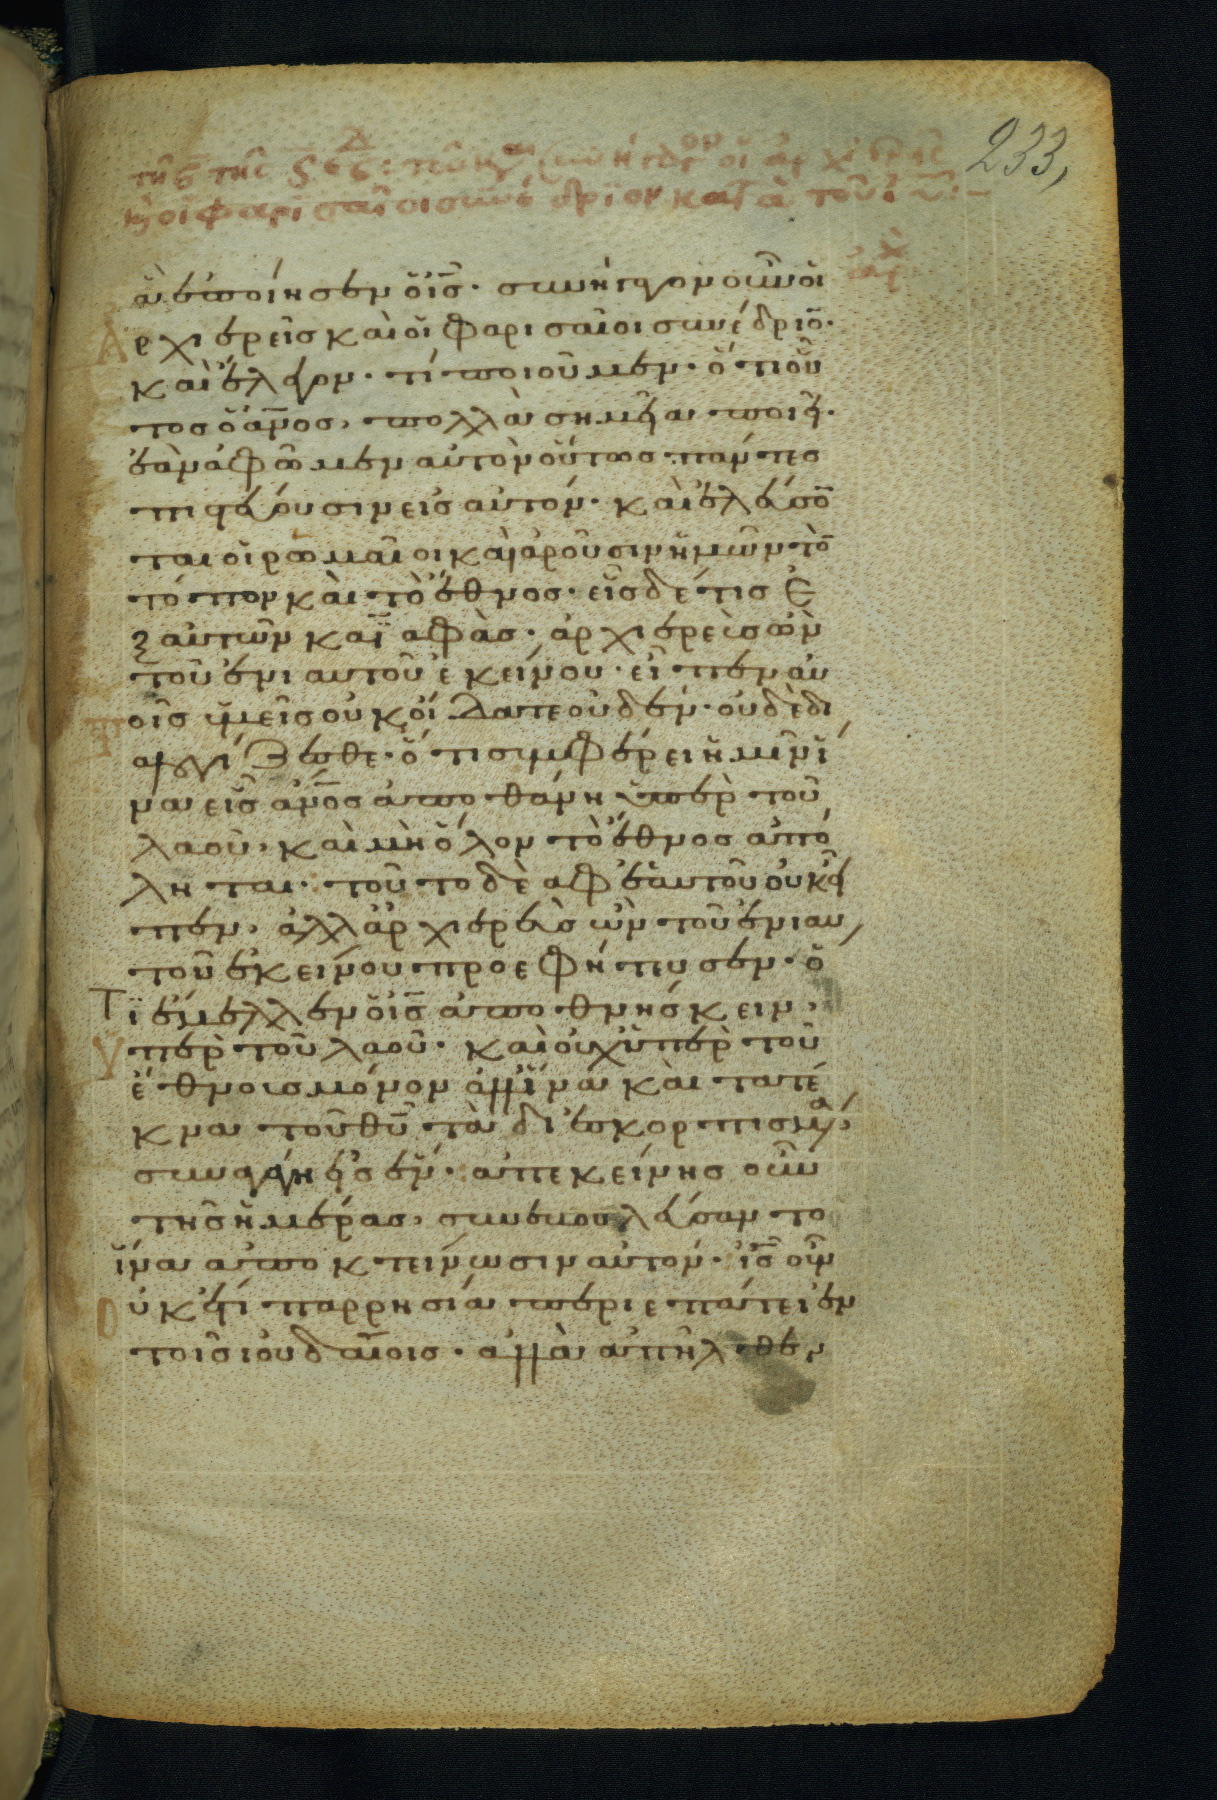 233,
κ οἱ φαρισαῖοι συνέδριον κατὰ τοῦ ιυ:-
ἃ ἐποίησεν ὁ ις. συνήγαγον οὖν οἱ
ἀρχιερεῖς καὶ οἱ φαρισαῖοι συνέδριο̅.
καὶ ἔλεγον. τί ποιοῦμεν. ὅτι οὗ
τος ὁ ανος, πολλὰ σημεῖα ποιεῖ.
ἐὰν ἀφῶμεν αὐτὸν οὕτως πάντες
πιστεύσουσιν εἰς αὐτόν. καὶ ἐλεύσο̅
ται οἱ ρωμαῖοι καὶ ἀροῦσιν ἡμῶν το̅
τόπον καὶ τὸ ἔθνος. εἷς δέ τις ἐ
ξ αὐτῶν καϊάφας. ἀρχιερεὺς ὢν
τοῦ ἐνιαυτοῦ ἐκείνου. εἶπεν αὐ
τοῖς ὑμεῖς οὐκ οἴδατε οὐδέν. οὐδὲ δι
αλογίζεσθε. ὅτι συμφέρει ἡμῖν ἵ
να εἷς ανος ἀποθάνη ὑπὲρ τοῦ
λαοῦ, καὶ μὴ ὅλον τὸ ἔθνος ἀπό
ληται. τοῦτο δὲ ἀφ ἑαυτοῦ οὐκ εἶ
πεν, ἀλλ ἀρχιερεὺς ὢν τοῦ ἐνιαυ
τοῦ ἐκείνου προεφήτευσεν. ὅ
Τϊ ἔμελλεν ὁ ις ἀποθνήσκειν,
ὑπὲρ τοῦ λαοῦ. καὶ οὐχ ὑπὲρ τοῦ
ἔθνους μόνον ἀλλ ἵνα καὶ τὰ τέ
κνα τοῦ θυ τὰ διεσκορπισμα,
συναγάγη εἰς ἕν. ἀπ ἐκείνης οὖν
τῆς ἡμέρας, συνεβουλεύσαντο
ἵνα ἀποκτείνωσιν αὐτόν. ις οὖν
οὐκέτι παρρησία περιεπάτει ἐν
τοῖς ἰουδαίοις. ἀλλὰ ἀπῆλθεν